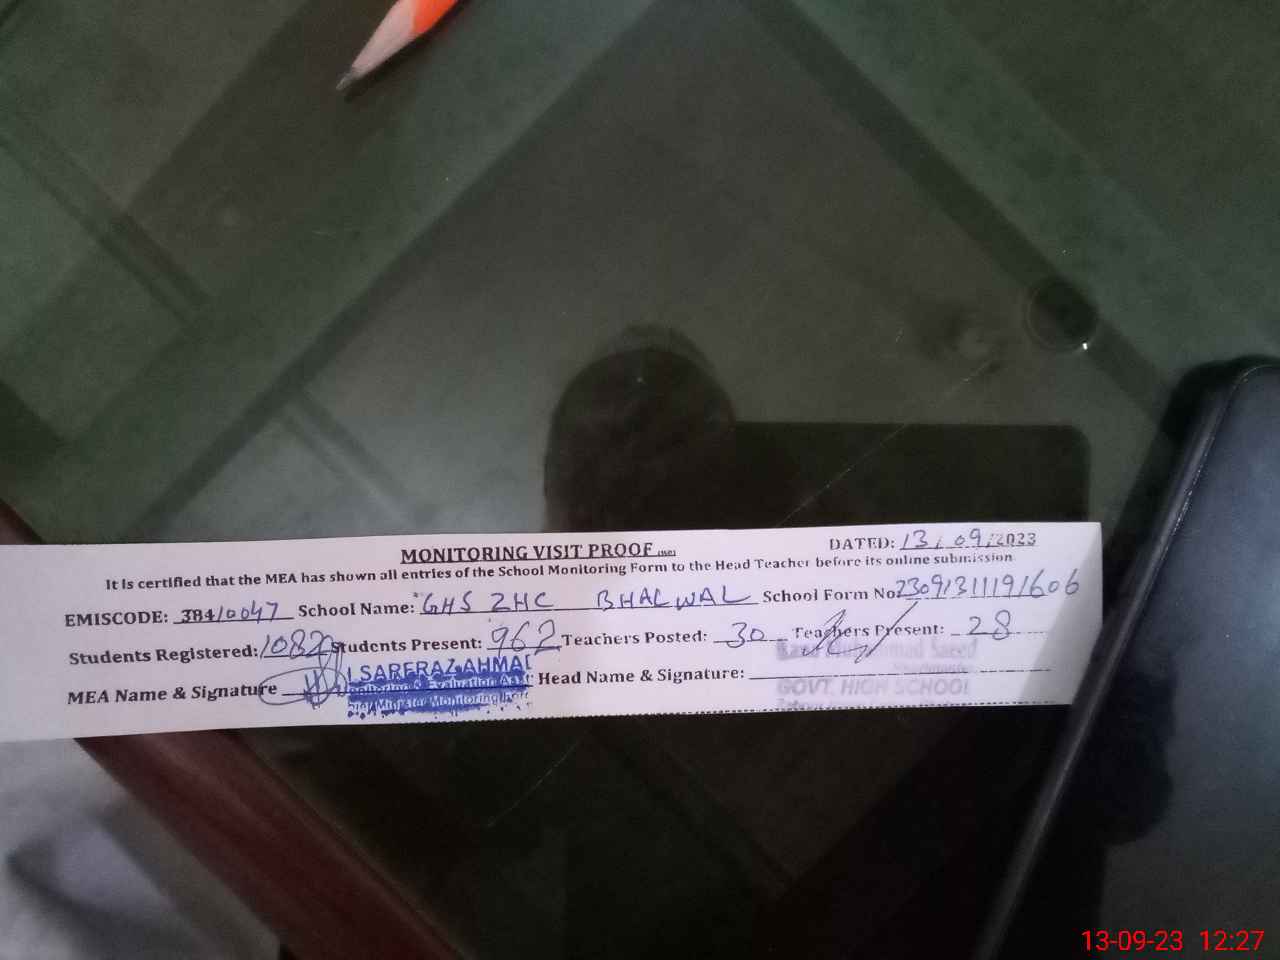 MONITORING VISIT PROOF
DATED: 13/09/2023
It is certified that the MEA has shown all entries of the School Monitoring Form to the Head Teacher before its online submission.
EMISCODE: 38410047 School Name: GHS ZHC BHALWAL School Form No: 23091311191606
Students Registered: 1082 Students Present: 962 Teachers Posted: 30 Teachers Present: 28
MEA Name & Signature SARFRAZ AHMAD Head Name & Signature:
Monitoring & Evaluation
Muhammad Saeed
GOVT. HIGH SCHOOL
13-09-23 12:27